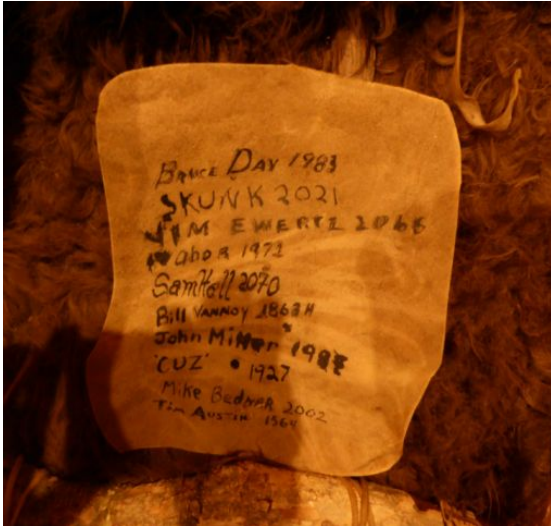 Bruce Day 1983
SKUNK 2021
JIM EWERTZ 2068
1972
Sam Hall 2070
Bill VANNOY 1863H
John Miller 1987
"CUZ" • 1927
Mike Bednar 2002
Tim AUSTIN 1564